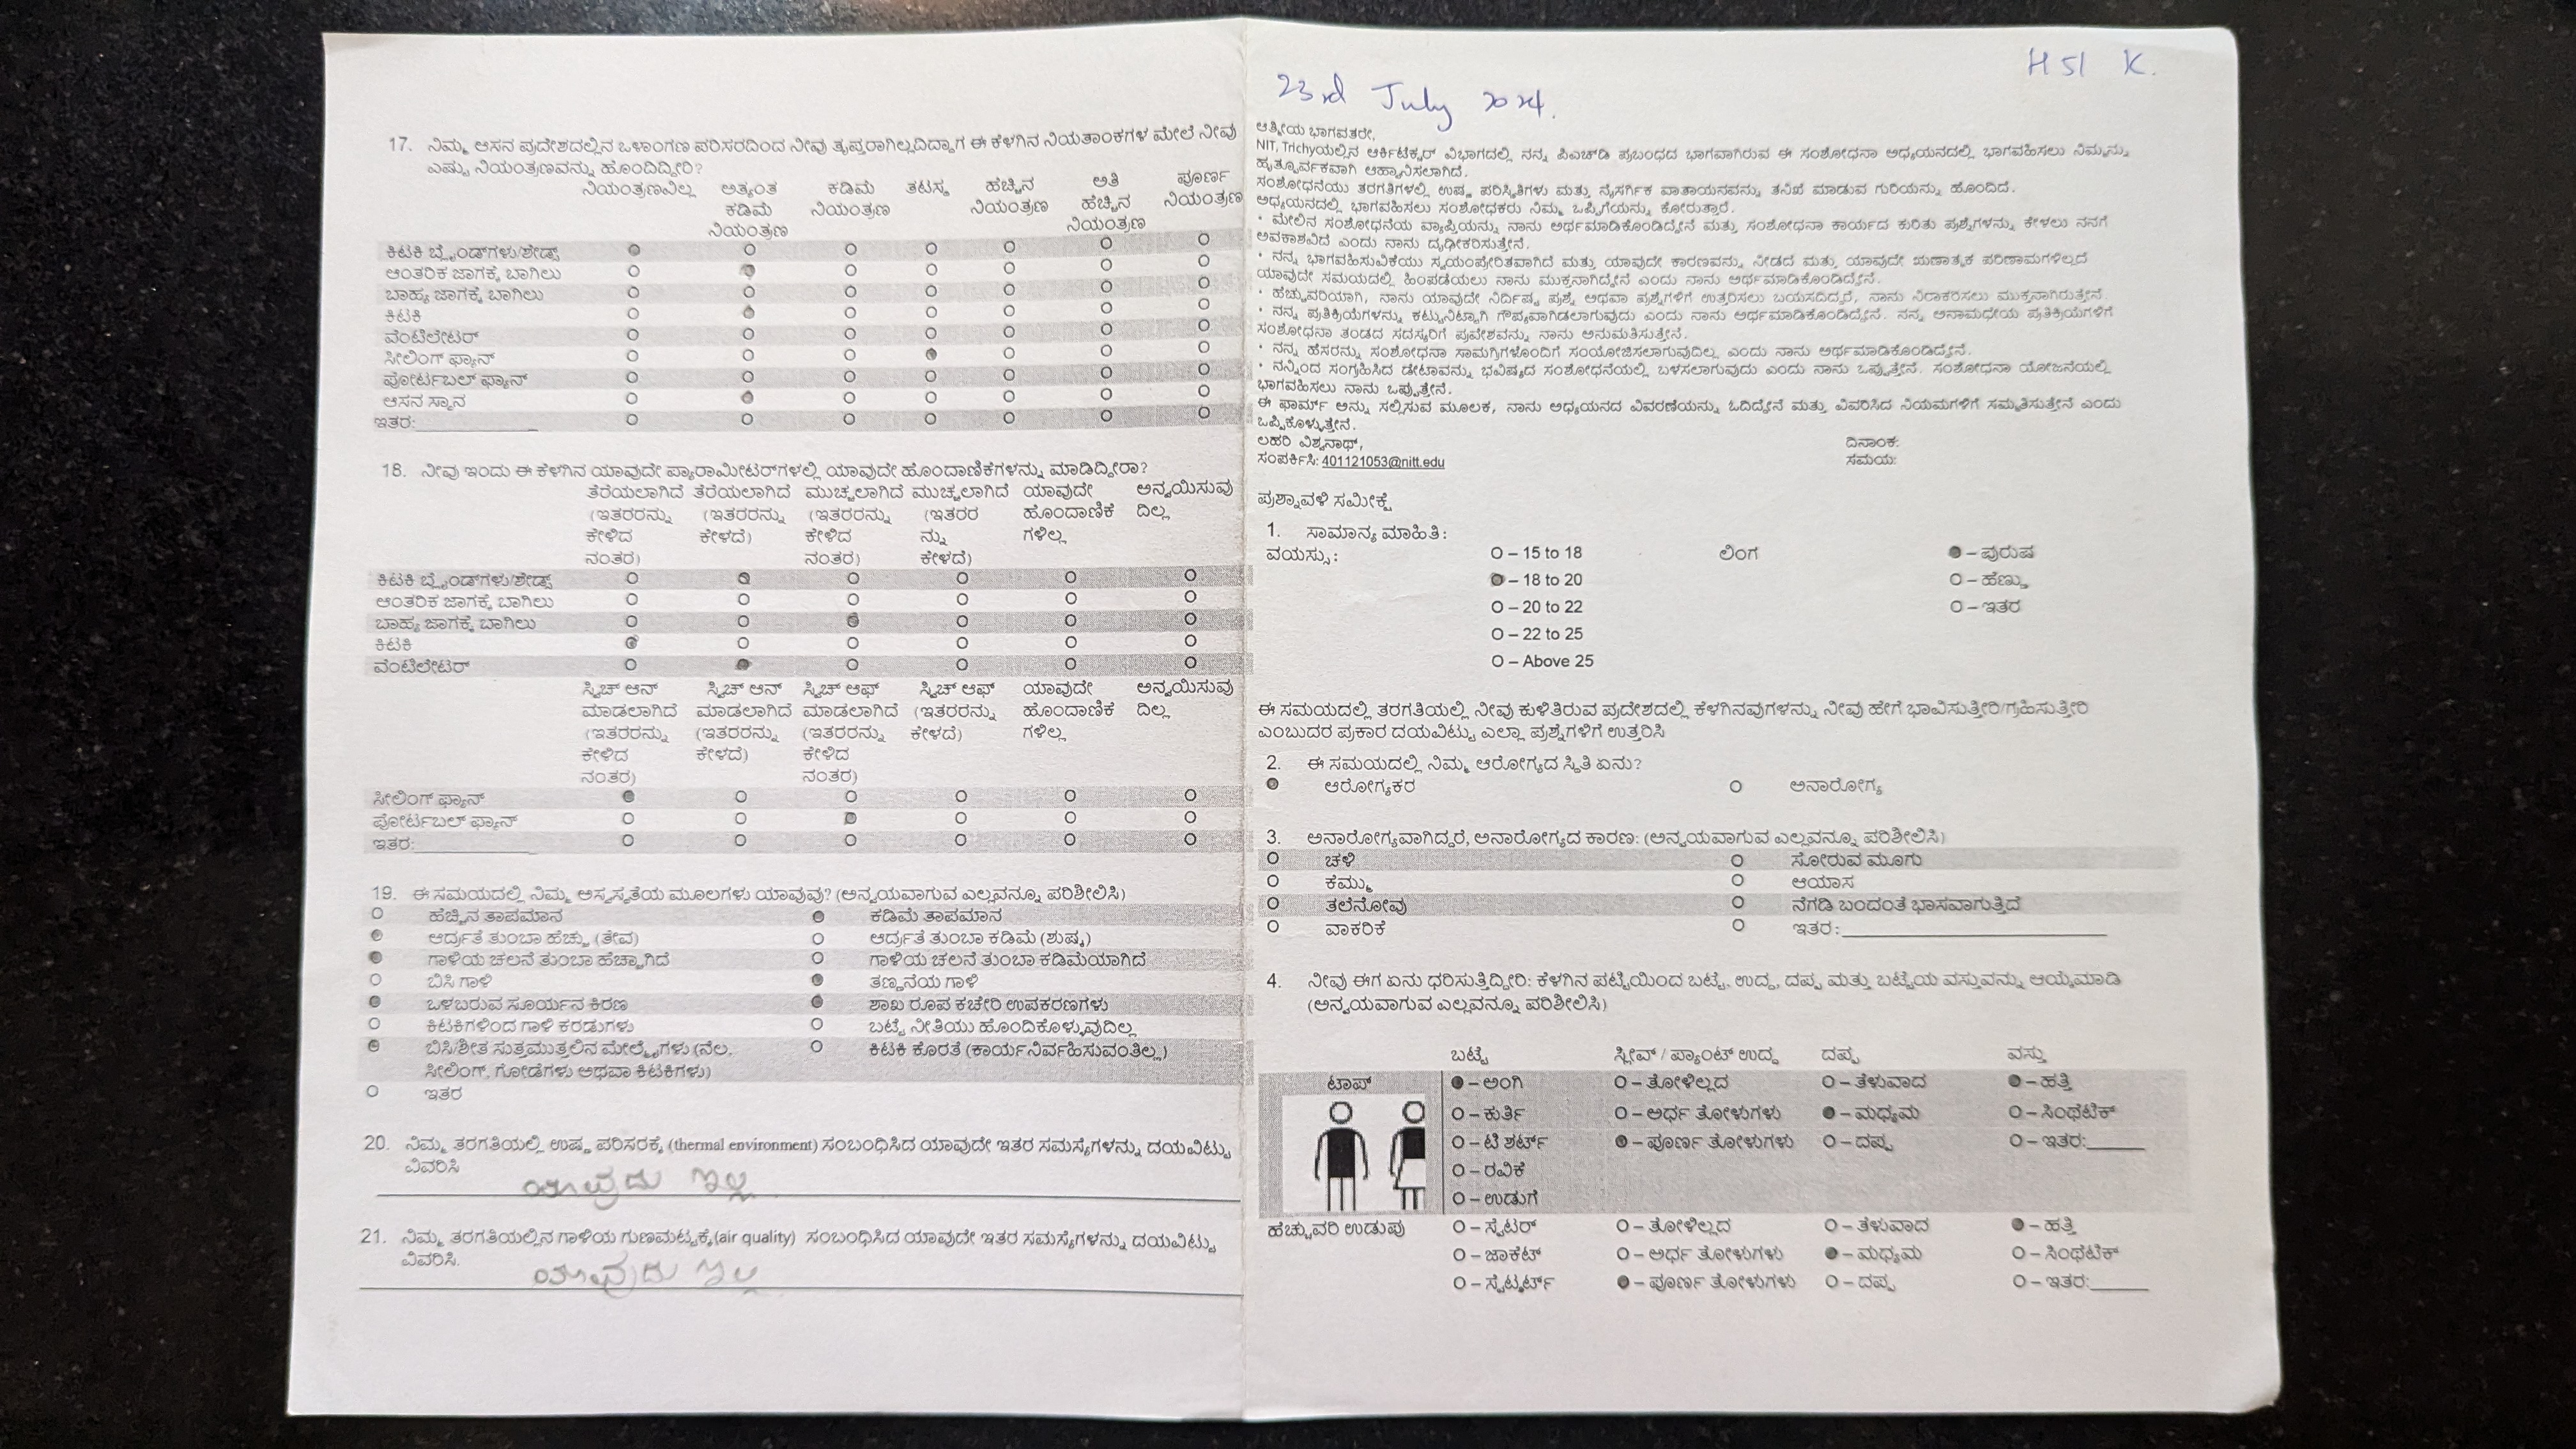 17. ನಿಮ್ಮ ಆಸನ ಪ್ರದೇಶದಲ್ಲಿನ ಒಳಾಂಗಣ ಪರಿಸರದಿಂದ ನೀವು ತೃಪ್ತರಾಗಿಲ್ಲದಿದ್ದಾಗ ಈ ಕೆಳಗಿನ ನಿಯತಾಂಕಗಳ ಮೇಲೆ ನೀವು
ಎಷ್ಟು ನಿಯಂತ್ರಣವನ್ನು ಹೊಂದಿದ್ದೀರಿ?
ನಿಯಂತ್ರಣವಿಲ್ಲ ಅತ್ಯಂತ ಕಡಿಮೆ ತಟಸ್ಥ ಹೆಚ್ಚಿನ ಅತಿ ಪೂರ್ಣ
ಕಡಿಮೆ ನಿಯಂತ್ರಣ ನಿಯಂತ್ರಣ ಹೆಚ್ಚಿನ ನಿಯಂತ್ರಣ
ನಿಯಂತ್ರಣ ನಿಯಂತ್ರಣ
ಕಿಟಕಿ ಬ್ಲೈಂಡ್‌ಗಳು/ಶೇಡ್ಸ್
ಆಂತರಿಕ ಜಾಗಕ್ಕೆ ಬಾಗಿಲು
ಬಾಹ್ಯ ಜಾಗಕ್ಕೆ ಬಾಗಿಲು
ಕಿಟಕಿ
ವೆಂಟಿಲೇಟರ್
ಸೀಲಿಂಗ್ ಫ್ಯಾನ್
ಪೋರ್ಟಬಲ್ ಫ್ಯಾನ್
ಆಸನ ಸ್ಥಾನ
ಇತರ:
18. ನೀವು ಇಂದು ಈ ಕೆಳಗಿನ ಯಾವುದೇ ಪ್ಯಾರಾಮೀಟರ್‌ಗಳಲ್ಲಿ ಯಾವುದೇ ಹೊಂದಾಣಿಕೆಗಳನ್ನು ಮಾಡಿದ್ದೀರಾ?
ತೆರೆಯಲಾಗಿದೆ ತೆರೆಯಲಾಗಿದೆ ಮುಚ್ಚಲಾಗಿದೆ ಮುಚ್ಚಲಾಗಿದೆ ಯಾವುದೇ ಅನ್ವಯಿಸುವು
(ಇತರರನ್ನು (ಇತರರನ್ನು (ಇತರರನ್ನು (ಇತರರ ಹೊಂದಾಣಿಕೆ ದಿಲ್ಲ
ಕೇಳಿದ ಕೇಳದೆ) ಕೇಳಿದ ನ್ನು ಗಳಿಲ್ಲ
ನಂತರ) ನಂತರ) ಕೇಳದೆ)
ಕಿಟಕಿ ಬ್ಲೈಂಡ್‌ಗಳು/ಶೇಡ್ಸ್
ಆಂತರಿಕ ಜಾಗಕ್ಕೆ ಬಾಗಿಲು
ಬಾಹ್ಯ ಜಾಗಕ್ಕೆ ಬಾಗಿಲು
ಕಿಟಕಿ
ವೆಂಟಿಲೇಟರ್
ಸ್ವಿಚ್ ಆನ್ ಸ್ವಿಚ್ ಆನ್ ಸ್ವಿಚ್ ಆಫ್ ಸ್ವಿಚ್ ಆಫ್ ಯಾವುದೇ ಅನ್ವಯಿಸುವು
ಮಾಡಲಾಗಿದೆ ಮಾಡಲಾಗಿದೆ ಮಾಡಲಾಗಿದೆ (ಇತರರನ್ನು ಹೊಂದಾಣಿಕೆ ದಿಲ್ಲ
(ಇತರರನ್ನು (ಇತರರನ್ನು (ಇತರರನ್ನು ಕೇಳದೆ) ಗಳಿಲ್ಲ
ಕೇಳಿದ ಕೇಳದೆ) ಕೇಳಿದ
ನಂತರ) ನಂತರ)
ಸೀಲಿಂಗ್ ಫ್ಯಾನ್
ಪೋರ್ಟಬಲ್ ಫ್ಯಾನ್
ಇತರ:
19. ಈ ಸಮಯದಲ್ಲಿ ನಿಮ್ಮ ಅಸ್ವಸ್ಥತೆಯ ಮೂಲಗಳು ಯಾವುವು? (ಅನ್ವಯವಾಗುವ ಎಲ್ಲವನ್ನೂ ಪರಿಶೀಲಿಸಿ)
ಹೆಚ್ಚಿನ ತಾಪಮಾನ ಕಡಿಮೆ ತಾಪಮಾನ
ಆರ್ದ್ರತೆ ತುಂಬಾ ಹೆಚ್ಚು (ತೇವ) ಆರ್ದ್ರತೆ ತುಂಬಾ ಕಡಿಮೆ (ಶುಷ್ಕ)
ಗಾಳಿಯ ಚಲನೆ ತುಂಬಾ ಹೆಚ್ಚಾಗಿದೆ ಗಾಳಿಯ ಚಲನೆ ತುಂಬಾ ಕಡಿಮೆಯಾಗಿದೆ
ಬಿಸಿ ಗಾಳಿ ತಣ್ಣನೆಯ ಗಾಳಿ
ಒಳಬರುವ ಸೂರ್ಯನ ಕಿರಣ ಶಾಖ ರೂಪ ಕಚೇರಿ ಉಪಕರಣಗಳು
ಕಿಟಕಿಗಳಿಂದ ಗಾಳಿ ಕರಡುಗಳು ಬಟ್ಟೆ ನೀತಿಯು ಹೊಂದಿಕೊಳ್ಳುವುದಿಲ್ಲ
ಬಿಸಿ/ಶೀತ ಸುತ್ತಮುತ್ತಲಿನ ಮೇಲ್ಮೈಗಳು (ನೆಲ, ಕಿಟಕಿ ಕೊರತೆ (ಕಾರ್ಯನಿರ್ವಹಿಸುವಂತಿಲ್ಲ)
ಸೀಲಿಂಗ್, ಗೋಡೆಗಳು ಅಥವಾ ಕಿಟಕಿಗಳು)
ಇತರ
20. ನಿಮ್ಮ ತರಗತಿಯಲ್ಲಿ ಉಷ್ಣ ಪರಿಸರಕ್ಕೆ (thermal environment) ಸಂಬಂಧಿಸಿದ ಯಾವುದೇ ಇತರ ಸಮಸ್ಯೆಗಳನ್ನು ದಯವಿಟ್ಟು
ವಿವರಿಸಿ
ಯಾವುದು ಇಲ್ಲ
21. ನಿಮ್ಮ ತರಗತಿಯಲ್ಲಿನ ಗಾಳಿಯ ಗುಣಮಟ್ಟಕ್ಕೆ(air quality) ಸಂಬಂಧಿಸಿದ ಯಾವುದೇ ಇತರ ಸಮಸ್ಯೆಗಳನ್ನು ದಯವಿಟ್ಟು
ವಿವರಿಸಿ.
ಯಾವುದು ಇಲ್ಲ
H 51 K.
23rd July 2024.
ಆತ್ಮೀಯ ಭಾಗವತರೇ,
NIT, Trichyಯಲ್ಲಿನ ಆರ್ಕಿಟೆಕ್ಚರ್ ವಿಭಾಗದಲ್ಲಿ ನನ್ನ ಪಿಎಚ್‌ಡಿ ಪ್ರಬಂಧದ ಭಾಗವಾಗಿರುವ ಈ ಸಂಶೋಧನಾ ಅಧ್ಯಯನದಲ್ಲಿ ಭಾಗವಹಿಸಲು ನಿಮ್ಮನ್ನು
ಹೃತ್ಪೂರ್ವಕವಾಗಿ ಆಹ್ವಾನಿಸಲಾಗಿದೆ.
ಸಂಶೋಧನೆಯು ತರಗತಿಗಳಲ್ಲಿ ಉಷ್ಣ ಪರಿಸ್ಥಿತಿಗಳು ಮತ್ತು ನೈಸರ್ಗಿಕ ವಾತಾಯನವನ್ನು ತನಿಖೆ ಮಾಡುವ ಗುರಿಯನ್ನು ಹೊಂದಿದೆ.
ಅಧ್ಯಯನದಲ್ಲಿ ಭಾಗವಹಿಸಲು ಸಂಶೋಧಕರು ನಿಮ್ಮ ಒಪ್ಪಿಗೆಯನ್ನು ಕೋರುತ್ತಾರೆ.
• ಮೇಲಿನ ಸಂಶೋಧನೆಯ ವ್ಯಾಪ್ತಿಯನ್ನು ನಾನು ಅರ್ಥಮಾಡಿಕೊಂಡಿದ್ದೇನೆ ಮತ್ತು ಸಂಶೋಧನಾ ಕಾರ್ಯದ ಕುರಿತು ಪ್ರಶ್ನೆಗಳನ್ನು ಕೇಳಲು ನನಗೆ
ಅವಕಾಶವಿದೆ ಎಂದು ನಾನು ದೃಢೀಕರಿಸುತ್ತೇನೆ.
• ನನ್ನ ಭಾಗವಹಿಸುವಿಕೆಯು ಸ್ವಯಂಪ್ರೇರಿತವಾಗಿದೆ ಮತ್ತು ಯಾವುದೇ ಕಾರಣವನ್ನು ನೀಡದೆ ಮತ್ತು ಯಾವುದೇ ಋಣಾತ್ಮಕ ಪರಿಣಾಮಗಳಿಲ್ಲದೆ
ಯಾವುದೇ ಸಮಯದಲ್ಲಿ ಹಿಂಪಡೆಯಲು ನಾನು ಮುಕ್ತನಾಗಿದ್ದೇನೆ ಎಂದು ನಾನು ಅರ್ಥಮಾಡಿಕೊಂಡಿದ್ದೇನೆ.
• ಹೆಚ್ಚುವರಿಯಾಗಿ, ನಾನು ಯಾವುದೇ ನಿರ್ದಿಷ್ಟ ಪ್ರಶ್ನೆ ಅಥವಾ ಪ್ರಶ್ನೆಗಳಿಗೆ ಉತ್ತರಿಸಲು ಬಯಸದಿದ್ದರೆ, ನಾನು ನಿರಾಕರಿಸಲು ಮುಕ್ತನಾಗಿರುತ್ತೇನೆ.
• ನನ್ನ ಪ್ರತಿಕ್ರಿಯೆಗಳನ್ನು ಕಟ್ಟುನಿಟ್ಟಾಗಿ ಗೌಪ್ಯವಾಗಿಡಲಾಗುವುದು ಎಂದು ನಾನು ಅರ್ಥಮಾಡಿಕೊಂಡಿದ್ದೇನೆ. ನನ್ನ ಅನಾಮಧೇಯ ಪ್ರತಿಕ್ರಿಯೆಗಳಿಗೆ
ಸಂಶೋಧನಾ ತಂಡದ ಸದಸ್ಯರಿಗೆ ಪ್ರವೇಶವನ್ನು ನಾನು ಅನುಮತಿಸುತ್ತೇನೆ.
• ನನ್ನ ಹೆಸರನ್ನು ಸಂಶೋಧನಾ ಸಾಮಗ್ರಿಗಳೊಂದಿಗೆ ಸಂಯೋಜಿಸಲಾಗುವುದಿಲ್ಲ ಎಂದು ನಾನು ಅರ್ಥಮಾಡಿಕೊಂಡಿದ್ದೇನೆ.
• ನನ್ನಿಂದ ಸಂಗ್ರಹಿಸಿದ ಡೇಟಾವನ್ನು ಭವಿಷ್ಯದ ಸಂಶೋಧನೆಯಲ್ಲಿ ಬಳಸಲಾಗುವುದು ಎಂದು ನಾನು ಒಪ್ಪುತ್ತೇನೆ. ಸಂಶೋಧನಾ ಯೋಜನೆಯಲ್ಲಿ
ಭಾಗವಹಿಸಲು ನಾನು ಒಪ್ಪುತ್ತೇನೆ.
ಈ ಫಾರ್ಮ್ ಅನ್ನು ಸಲ್ಲಿಸುವ ಮೂಲಕ, ನಾನು ಅಧ್ಯಯನದ ವಿವರಣೆಯನ್ನು ಓದಿದ್ದೇನೆ ಮತ್ತು ವಿವರಿಸಿದ ನಿಯಮಗಳಿಗೆ ಸಮ್ಮತಿಸುತ್ತೇನೆ ಎಂದು
ಒಪ್ಪಿಕೊಳ್ಳುತ್ತೇನೆ.
ಲಹರಿ ವಿಶ್ವನಾಥ್, ದಿನಾಂಕ:
ಸಂಪರ್ಕಿಸಿ: 401121053@nitt.edu ಸಮಯ:
ಪ್ರಶ್ನಾವಳಿ ಸಮೀಕ್ಷೆ
1. ಸಾಮಾನ್ಯ ಮಾಹಿತಿ:
ವಯಸ್ಸು: – 15 to 18 ಲಿಂಗ – ಪುರುಷ
– 18 to 20 – ಹೆಣ್ಣು
– 20 to 22 – ಇತರ
– 22 to 25
– Above 25
ಈ ಸಮಯದಲ್ಲಿ ತರಗತಿಯಲ್ಲಿ ನೀವು ಕುಳಿತಿರುವ ಪ್ರದೇಶದಲ್ಲಿ ಕೆಳಗಿನವುಗಳನ್ನು ನೀವು ಹೇಗೆ ಭಾವಿಸುತ್ತೀರಿ/ಗ್ರಹಿಸುತ್ತೀರಿ
ಎಂಬುದರ ಪ್ರಕಾರ ದಯವಿಟ್ಟು ಎಲ್ಲಾ ಪ್ರಶ್ನೆಗಳಿಗೆ ಉತ್ತರಿಸಿ
2. ಈ ಸಮಯದಲ್ಲಿ ನಿಮ್ಮ ಆರೋಗ್ಯದ ಸ್ಥಿತಿ ಏನು?
ಆರೋಗ್ಯಕರ ಅನಾರೋಗ್ಯ
3. ಅನಾರೋಗ್ಯವಾಗಿದ್ದರೆ, ಅನಾರೋಗ್ಯದ ಕಾರಣ: (ಅನ್ವಯವಾಗುವ ಎಲ್ಲವನ್ನೂ ಪರಿಶೀಲಿಸಿ)
ಚಳಿ ಸೋರುವ ಮೂಗು
ಕೆಮ್ಮು ಆಯಾಸ
ತಲೆನೋವು ನೆಗಡಿ ಬಂದಂತೆ ಭಾಸವಾಗುತ್ತಿದೆ
ವಾಕರಿಕೆ ಇತರ:
4. ನೀವು ಈಗ ಏನು ಧರಿಸುತ್ತಿದ್ದೀರಿ: ಕೆಳಗಿನ ಪಟ್ಟಿಯಿಂದ ಬಟ್ಟೆ, ಉದ್ದ, ದಪ್ಪ ಮತ್ತು ಬಟ್ಟೆಯ ವಸ್ತುವನ್ನು ಆಯ್ಕೆಮಾಡಿ
(ಅನ್ವಯವಾಗುವ ಎಲ್ಲವನ್ನೂ ಪರಿಶೀಲಿಸಿ)
ಬಟ್ಟೆ ಸ್ಲೀವ್ / ಪ್ಯಾಂಟ್ ಉದ್ದ ದಪ್ಪ ವಸ್ತು
ಟಾಪ್ – ಅಂಗಿ – ತೋಳಿಲ್ಲದ – ತೆಳುವಾದ – ಹತ್ತಿ
– ಕುರ್ತಿ – ಅರ್ಧ ತೋಳುಗಳು – ಮಧ್ಯಮ – ಸಿಂಥೆಟಿಕ್
– ಟಿ ಶರ್ಟ್ – ಪೂರ್ಣ ತೋಳುಗಳು – ದಪ್ಪ – ಇತರ:
– ರವಿಕೆ
– ಉಡುಗೆ
ಹೆಚ್ಚುವರಿ ಉಡುಪು – ಸ್ವೆಟರ್ – ತೋಳಿಲ್ಲದ – ತೆಳುವಾದ – ಹತ್ತಿ
– ಜಾಕೆಟ್ – ಅರ್ಧ ತೋಳುಗಳು – ಮಧ್ಯಮ – ಸಿಂಥೆಟಿಕ್
– ಸ್ವೆಟ್ಶರ್ಟ್ – ಪೂರ್ಣ ತೋಳುಗಳು – ದಪ್ಪ – ಇತರ: